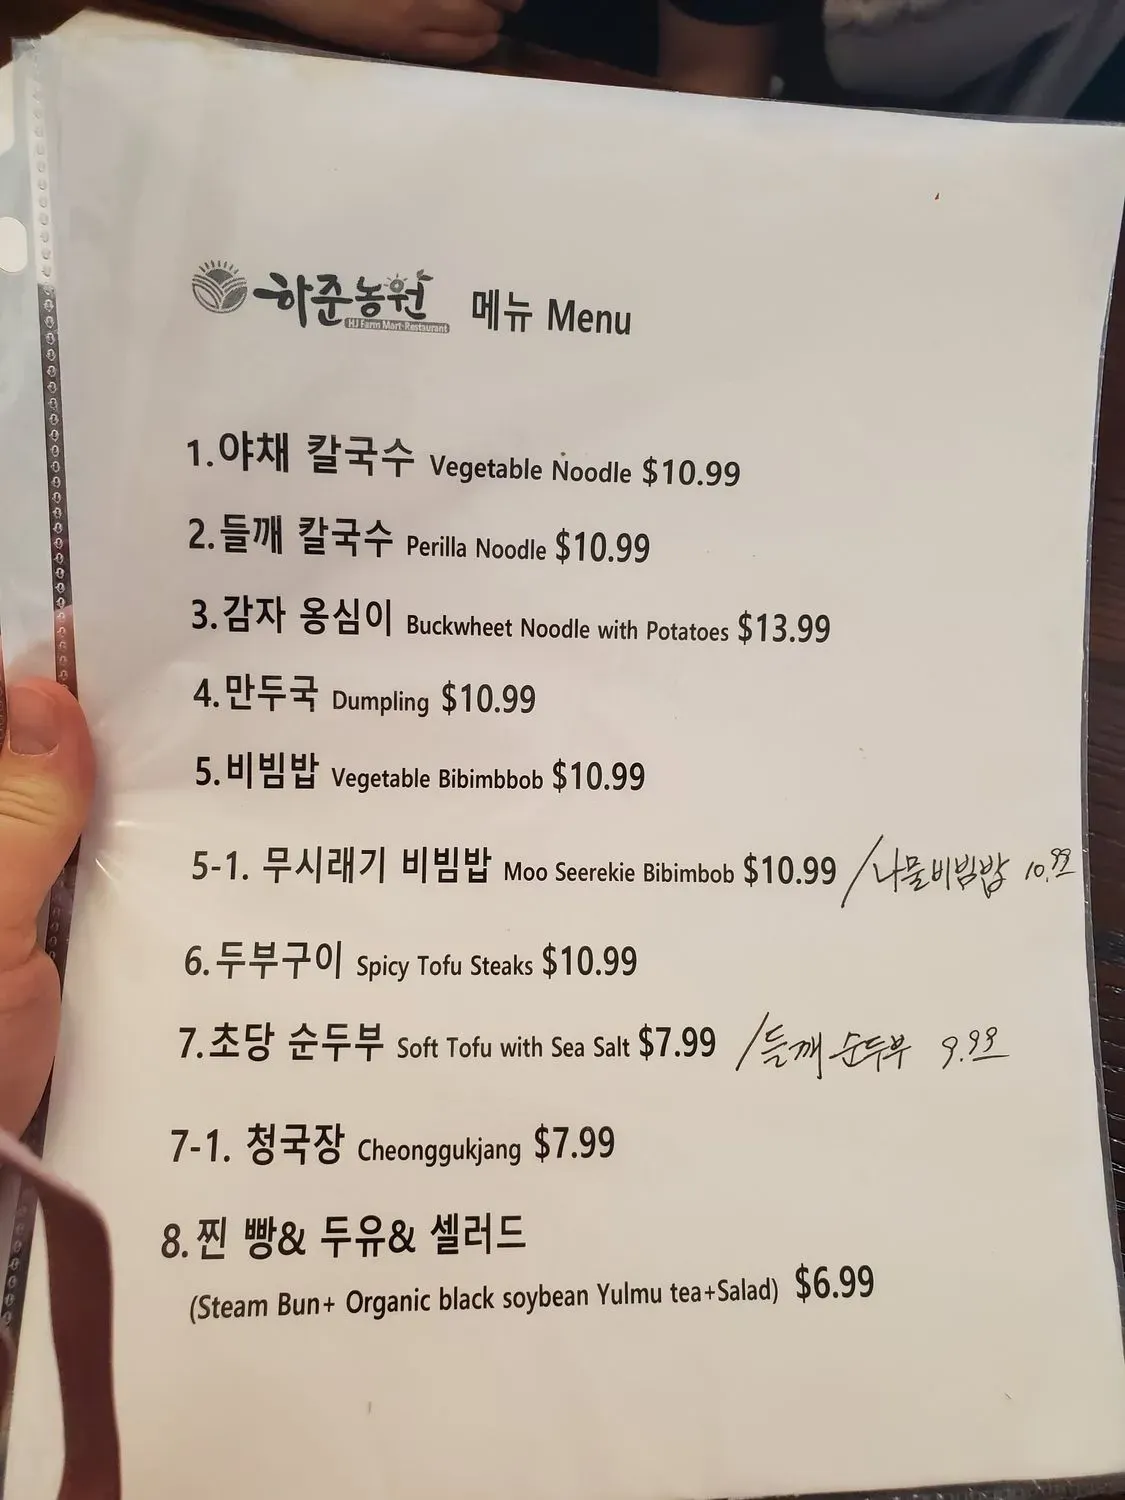 하준농원 메뉴 Menu
HJ Farm Mart-Restaurant
1.야채 칼국수 Vegetable Noodle $10.99
2.들깨 칼국수 Perilla Noodle $10.99
3.감자 옹심이 Buckwheet Noodle with Potatoes $13.99
4.만두국 Dumpling $10.99
5.비빔밥 Vegetable Bibimbbob $10.99
5-1. 무시래기 비빔밥 Moo Seerekie Bibimbob $10.99 /나물비빔밥 10.99
6.두부구이 Spicy Tofu Steaks $10.99
7.초당 순두부 Soft Tofu with Sea Salt $7.99 /들깨 순두부 9.99
7-1. 청국장 Cheonggukjang $7.99
8.찐 빵& 두유& 셀러드
(Steam Bun+ Organic black soybean Yulmu tea+Salad) $6.99